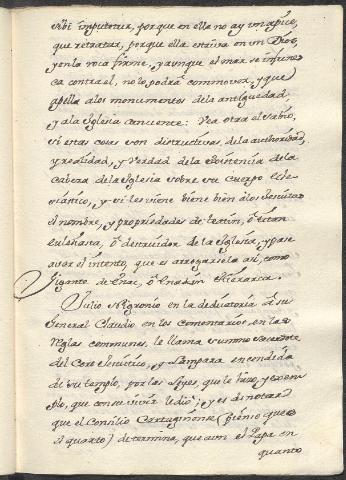 sibi imputetur, porque en ella no ay un apice,
que retratar, porque ella estriva en un Dios,
y en la roca firme, y aunque el mar se infurez
ca contra el, no lo podrá commover, y que
apella a los monumentos de la antiguedad,
y a la Iglesia  : Vea otra el sabio,
si estas cosas son distructivas de la authoridad,
y realidad, y verdad de la existencia de la
Cabeza de la Iglesia sobre su cuerpo Ecle
siástico, y si les viene bien à los Jesuitas
el nombre, y propriedades de
 ô destruidor de la Iglesia, y pase
 el intento, que es arrogarsela así, como
Gigante de Enac, ô  Hierarca.
Julio Nigronio en la dedicatoria â su
General Claudio en los comentarios, en las
Reglas communes, le llama summo sacerdote
del Coro Jesuitico, y Lampara encendida
de su templo, por las Leyes, que le hizo, y exem
plo, que  vivir le dio; y es de notar
que el Consilio Cartaginense (pienso que es
el quarto) determina, que aun el Papa en
quanto